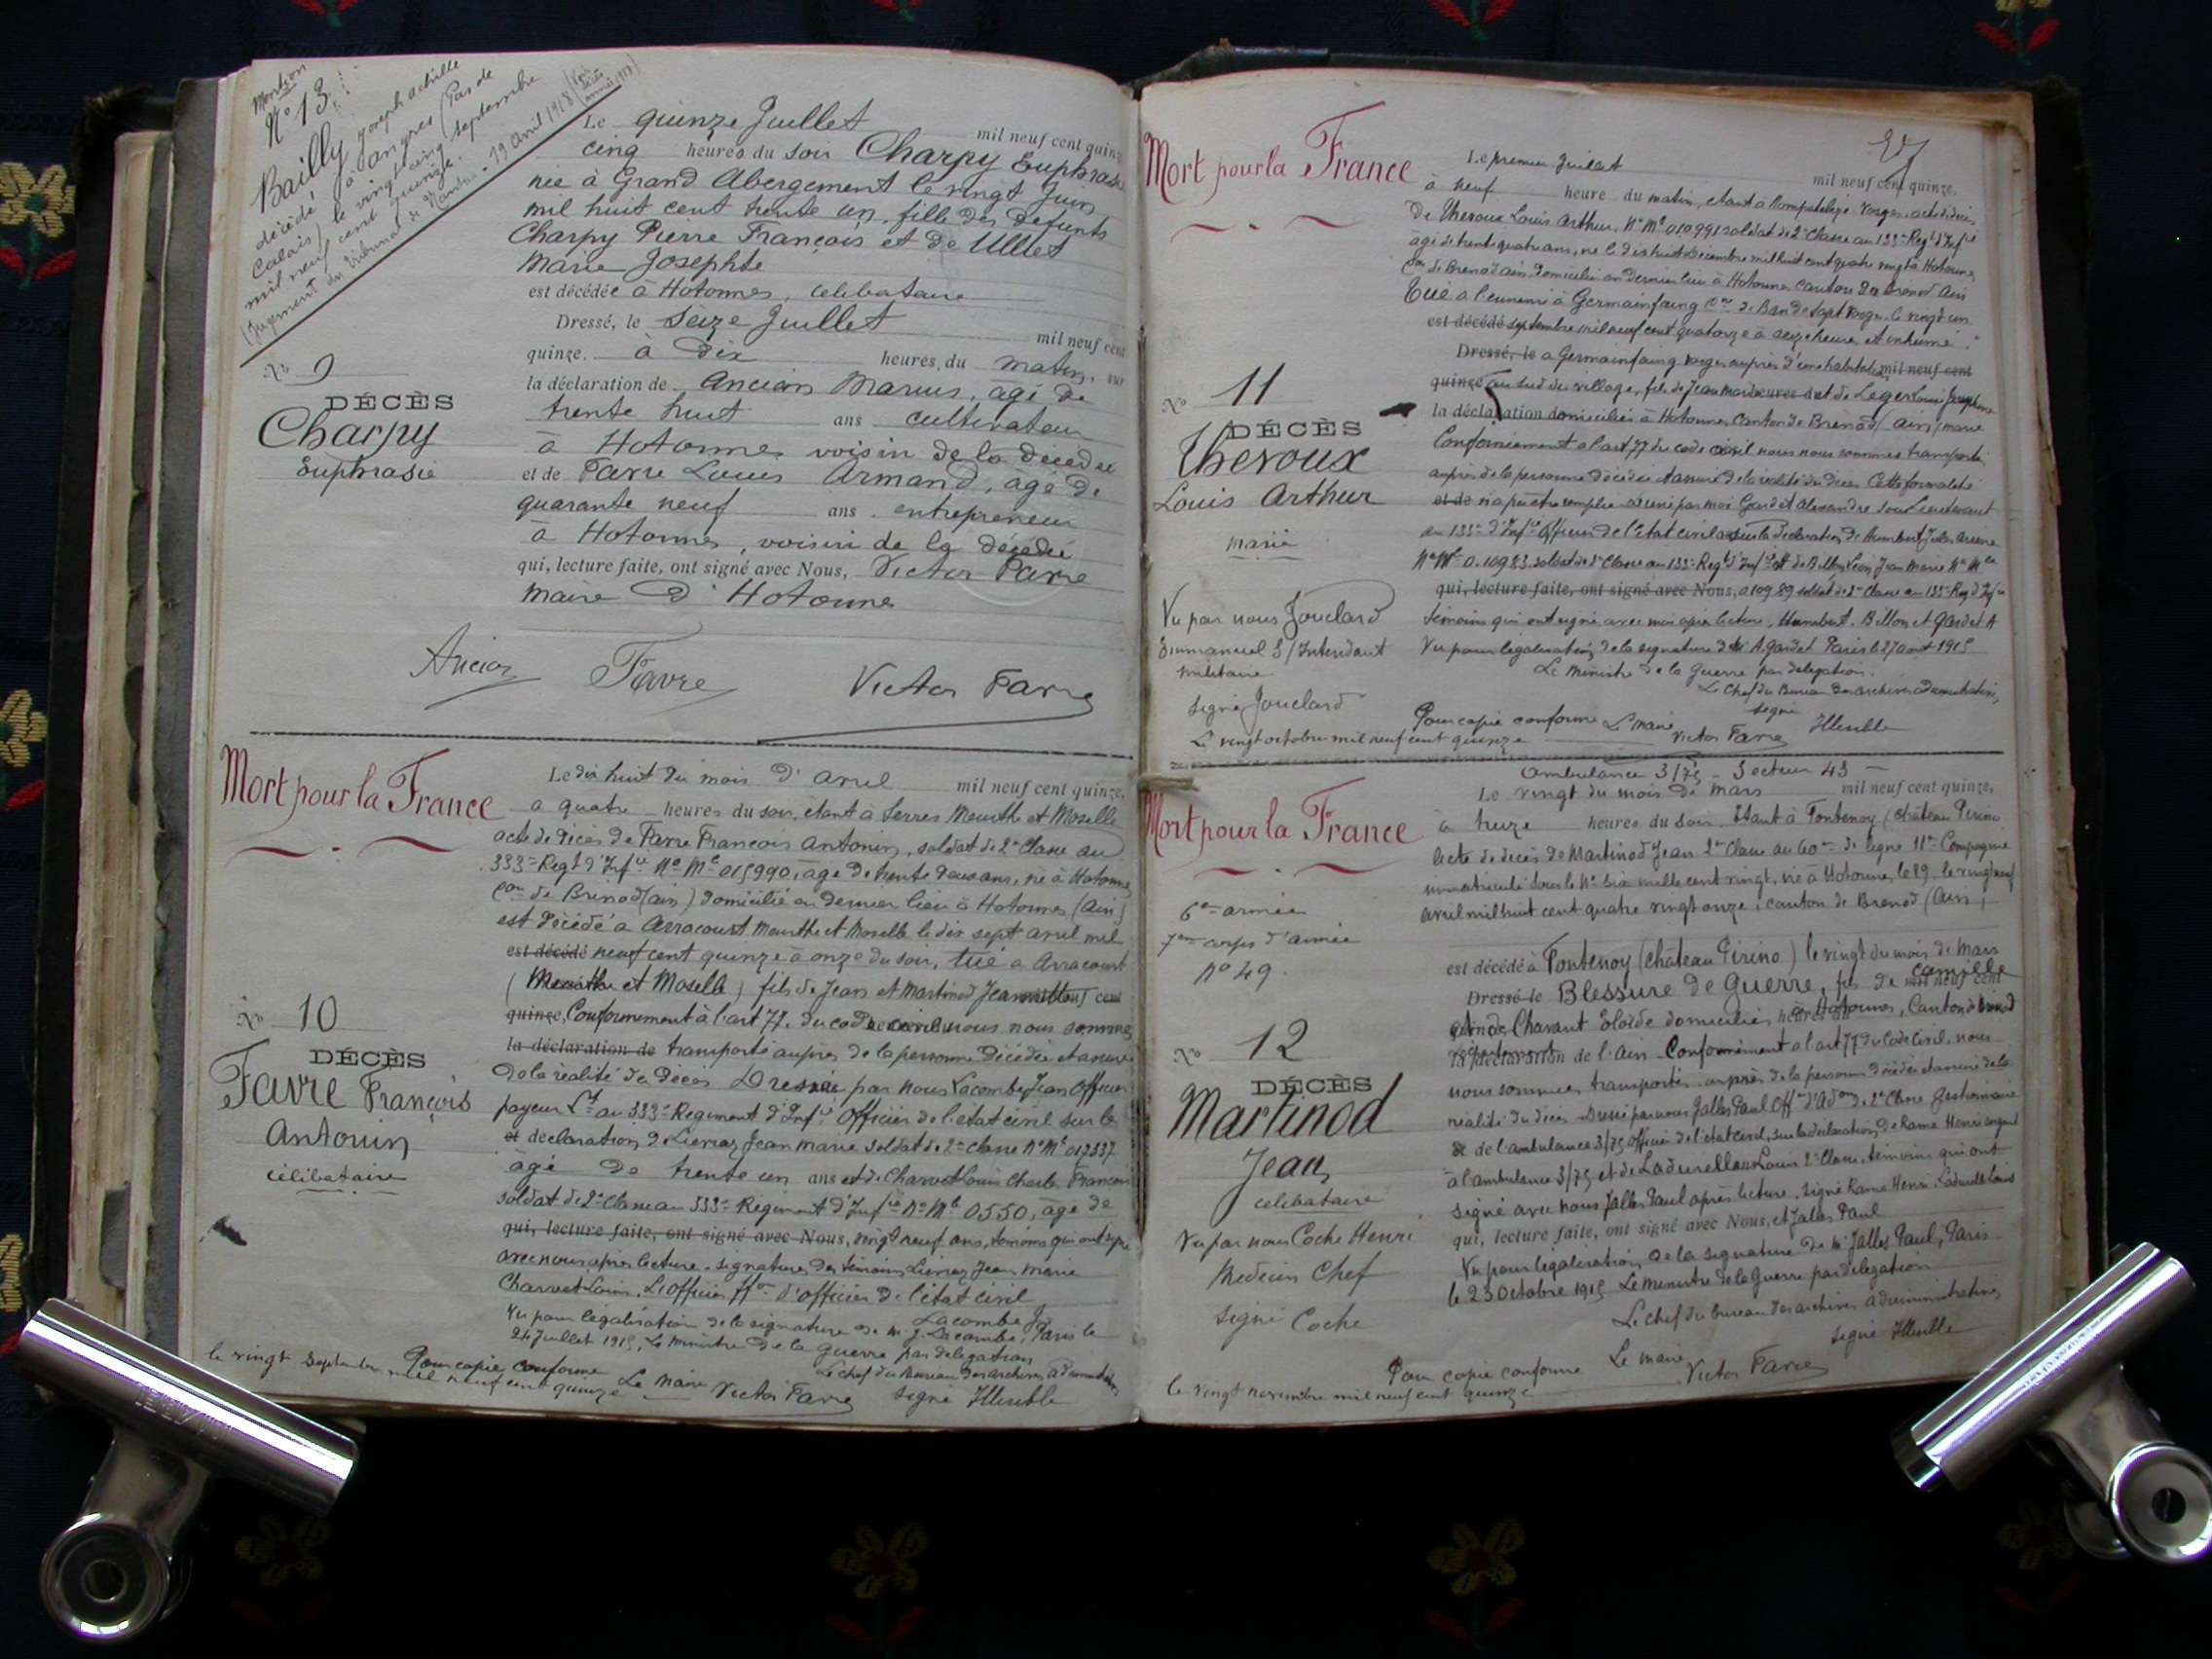 Mention
N° 13
Bailly Joseph Achille
décédé à Angres (Pas de
Calais) le vingt cinq septembre
mil neuf cent quinze.
(Jugement du Tribunal de Nantua - 19 avril 1918)
N° 9
DÉCÈS
Charpy
Euphrasie
Le quinze Juillet mil neuf cent quinze
cinq heures du soir Charpy Euphrasie
née à Grand Abergement le vingt Juin
mil huit cent trente un, fille des défunts
Charpy Pierre François et de Ulliet
Marie Josephte
est décédée à Hotonnes, célibataire
Dressé, le Seize Juillet mil neuf cent
quinze. à dix heures, du matin, sur
la déclaration de Ancian Marius, âgé de
trente huit ans cultivateur
à Hotonnes voisin de la décédée
et de Favre Louis Armand, âgé de
quarante neuf ans entrepreneur
à Hotonnes, voisin de la décédée
qui, lecture faite, ont signé avec Nous, Victor Favre
maire d'Hotonnes
Ancian Favre Victor Favre
Mort pour la France
N° 10
DÉCÈS
Favre François
Antonin
célibataire
Le dix huit du mois d'avril mil neuf cent quinze,
a quatre heures du soir, étant à Serres Meurthe et Moselle
acte de décès de Favre François Antonin, soldat de 2e Classe au
333e Regt d'Infie No Mle 015990, âgé de trente deux ans, né à Hotonnes
Con de Brénod (ain) domicilié en dernier lieu à Hotonnes (Ain)
est décédé à Arracourt Meurthe et Moselle le dix sept avril mil
est décédé neuf cent quinze à onze du soir, tué a Arracourt
(Meurthe et Moselle) fils de Jean et Martinod Jeannette mil neuf cent
quinze, Conformément à l'art 77. du code civil nous nous sommes
la déclaration de transporté auprès de la personne décédée et assuré
de la réalité du décès Dressée par nous Lacombe Jean Officier
payeur Lt au 333e Regiment d'Infie Officier de l'état civil sur la
et déclaration de Lierraz Jean Marie soldat de 2e classe No Mle 017337
âgé de trente un ans et de Charvet Louis Charles François
soldat de 2e Classe au 333e Régiment d'Infie No Mle 0550, âgé de
qui, lecture faite, ont signé avec Nous, vingt neuf ans, témoins qui ont signé
avec nous après lecture. signatures des témoins Lierraz Jean Marie
Charvet Louis, L'officier ffon d'officier de l'état civil
Lacombe J
Vu pour légalisation de la signature de M. J. Lacombe, Paris le
24 Juillet 1915, Le ministre de la guerre par délégation
Le chef du Bureau des archives administratives
Pour copie conforme Le Maire Victor Favre signé Illeuble
le vingt septembre mil neuf cent quinze
Mort pour la France
N° 11
DÉCÈS
Théroux
Louis Arthur
marié
Vu par nous Jouclard
Emmanuel S/Intendant
militaire
signé Jouclard
Le premier Juillet mil neuf cent quinze.
à neuf heure du matin, étant à Vosges, acte de décès
De Theroux Louis Arthur. No Mle 010991 soldat de 2e Classe au 133e Regt d'Infie
âgé de trente quatre ans, né le dix huit décembre mil huit cent quatre vingt à Hotonnes
Con de Brenod ain. Domicilié en dernier lieu à Hotonnes Canton de Brenod Ain
Tué a l'ennemi à Germainfaing Cne de Ban de Sapt Vosges. le vingt un
est décédé septembre mil neuf cent quatorze à seize heures et inhumé
Dressé, le a Germainfaing Vosges auprès d'une habitation mil neuf cent
quinze au sud du village, fils de Jean Marie heures du et de Leger Louise Josephine
la déclaration domiciliés à Hotonnes Canton de Brénod (ain) marié
Conformément a l'art 77 du code civil nous nous sommes transporté
auprès de la personne décédée et assuré de la réalité du décès Cette formalité
et de n'a pu être remplie dressé par moi Gardet Alexandre sous Lieutenant
au 133e d'Infie Officier de l'état civil sur la déclaration de Humbert Jules
No Mle 0.10983 soldat de 2e Classe au 133e Regt d'Infie et de Billon Léon Jean Marie No Mle
qui, lecture faite, ont signé avec Nous, 010989 soldat de 2e Classe au 133e Reg d'Infie
témoins qui ont signé avec moi après lecture, Humbert. Billon et Gardet A
Vu pour légalisation, de la signature de Mr A. Gardet Paris le 27 aout 1915
Le Ministre de la Guerre par délégation.
Le Chef du Bureau des archives administratives
signé Illeuble
Pour copie conforme Le Maire Victor Favre
Le vingt octobre mil neuf cent quinze
Mort pour la France
6e armée
7eme corps d'armée
N° 49
N° 12
DÉCÈS
Martinod
Jean
célibataire
Vu par nous Coche Henri
Medecin Chef
signé Coche
Ambulance 3/75 - Secteur 43
Le vingt du mois de mars mil neuf cent quinze,
à treize heures du soir. Etant à Fontenoy (château Firino
Acte de décès de Martinod Jean 2e Classe au 60e de ligne 11e Compagnie
immatriculé sous le No Six mille cent vingt, né à Hotonnes, le 29, le vingt neuf
avril mil huit cent quatre vingt onze, canton de Brenod (Ain)
est décédé à Fontenoy (château Firino) le vingt du mois de Mars
Dressé le Blessure de Guerre, fils de Camille mil neuf cent
et de Chavant Eloïde domiciliés à Hotonnes, Canton de Brénod
la déclaration département de l'Ain. Conformément a l'art 77 du Code Civil, nous
nous sommes transportés auprès de la personne décédée et assuré de la
réalité du décès Dressé par nous Jalles Paul Offer d'Adon de 2e Classe gestionnaire
de de l'ambulance 3/75 officier de l'état civil, sur la déclaration de Rame Henri sergent
à l'ambulance 3/75 et de Ladurelle Louis 2e Classe, témoins qui ont
signé avec nous Jalles Paul après lecture. Signé Rame Henri, Ladurelle Louis
qui, lecture faite, ont signé avec Nous, et Jalles Paul
Vu pour légalisation de la signature de Mr Jalles Paul, Paris
le 23 Octobre 1915 Le Ministre de la Guerre par délégation
Le chef du bureau des archives administratives
signé Illeuble
Pour copie conforme Le Maire Victor Favre
le vingt novembre mil neuf cent quinze